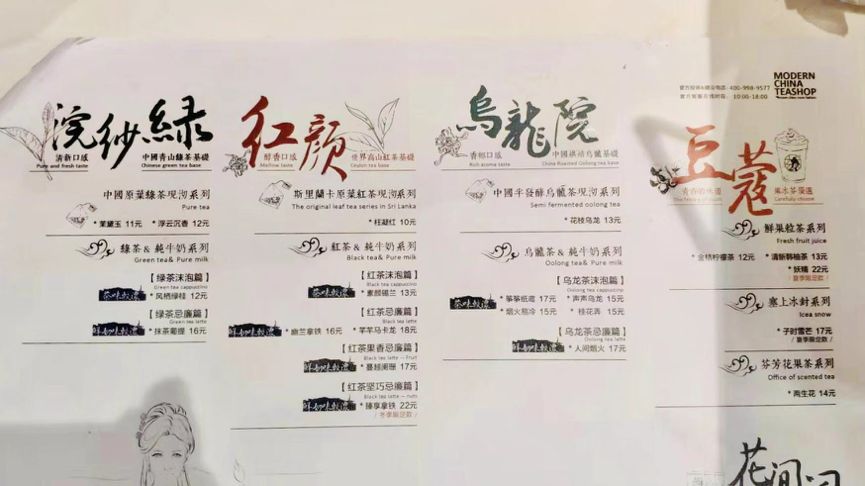 浣纱綠
清新口感
Pure and fresh taste
中國青山綠茶基礎
Chinese green tea base
中國原葉綠茶現沏系列
Pure tea
* 茉黛玉 11元
* 浮云沉香 12元
綠茶&純牛奶系列
Green tea& Pure milk
【绿茶沫泡篇】
Green tea cappuccino
* 风栖绿桂 12元
【绿茶忌廉篇】
Green tea latte
* 抹茶菊提 16元
红颜
醇香口感
Mellow taste
世界高山紅茶基礎
Ceylon tea base
斯里蘭卡原葉紅茶現沏系列
The original leaf tea series in Sri Lanka
* 桂凝红 10元
紅茶&純牛奶系列
Black tea& Pure milk
【红茶沫泡篇】
Black tea cappuccino
* 素颜锡兰 13元
【红茶忌廉篇】
Black tea latte
* 幽兰拿铁 16元
* 芊芊马卡龙 18元
【红茶果香忌廉篇】
Black tea latte — Fruit
* 蔓越阑珊 17元
【红茶坚巧忌廉篇】
Black tea latte — nuts
* 臻享拿铁 22元
/ 冬季限定款 /
烏龍院
香郁口感
Rich aroma taste
中國烘焙烏龍基礎
China Roasted Oolong tea base
中國半發酵烏龍茶現沏系列
Semi fermented oolong tea
* 花枝乌龙 13元
烏龍茶&純牛奶系列
Oolong tea& Pure milk
【乌龙茶沫泡篇】
Oolong tea cappuccino
* 筝筝纸鸢 17元
* 声声乌龙 15元
* 烟火易冷 15元
* 桂花弄 15元
【乌龙茶忌廉篇】
Oolong tea latte
* 人间烟火 17元
MODERN
CHINA
TEASHOP
400-998-9577
10:00-18:00
豆蔻
青春的味道
The feeling of youth
果水茶蔓選
Carefully choose
鮮果粒茶系列
Fresh fruit juice
* 金桔柠檬茶 12元
* 清新韩柚茶 13元
* 妖精 22元
/ 夏季限定款 /
塞上冰封系列
Icea snow
* 子时雪芒 17元
/ 夏季限定款 /
芬芳花果茶系列
Office of scented tea
* 两生花 14元
花间